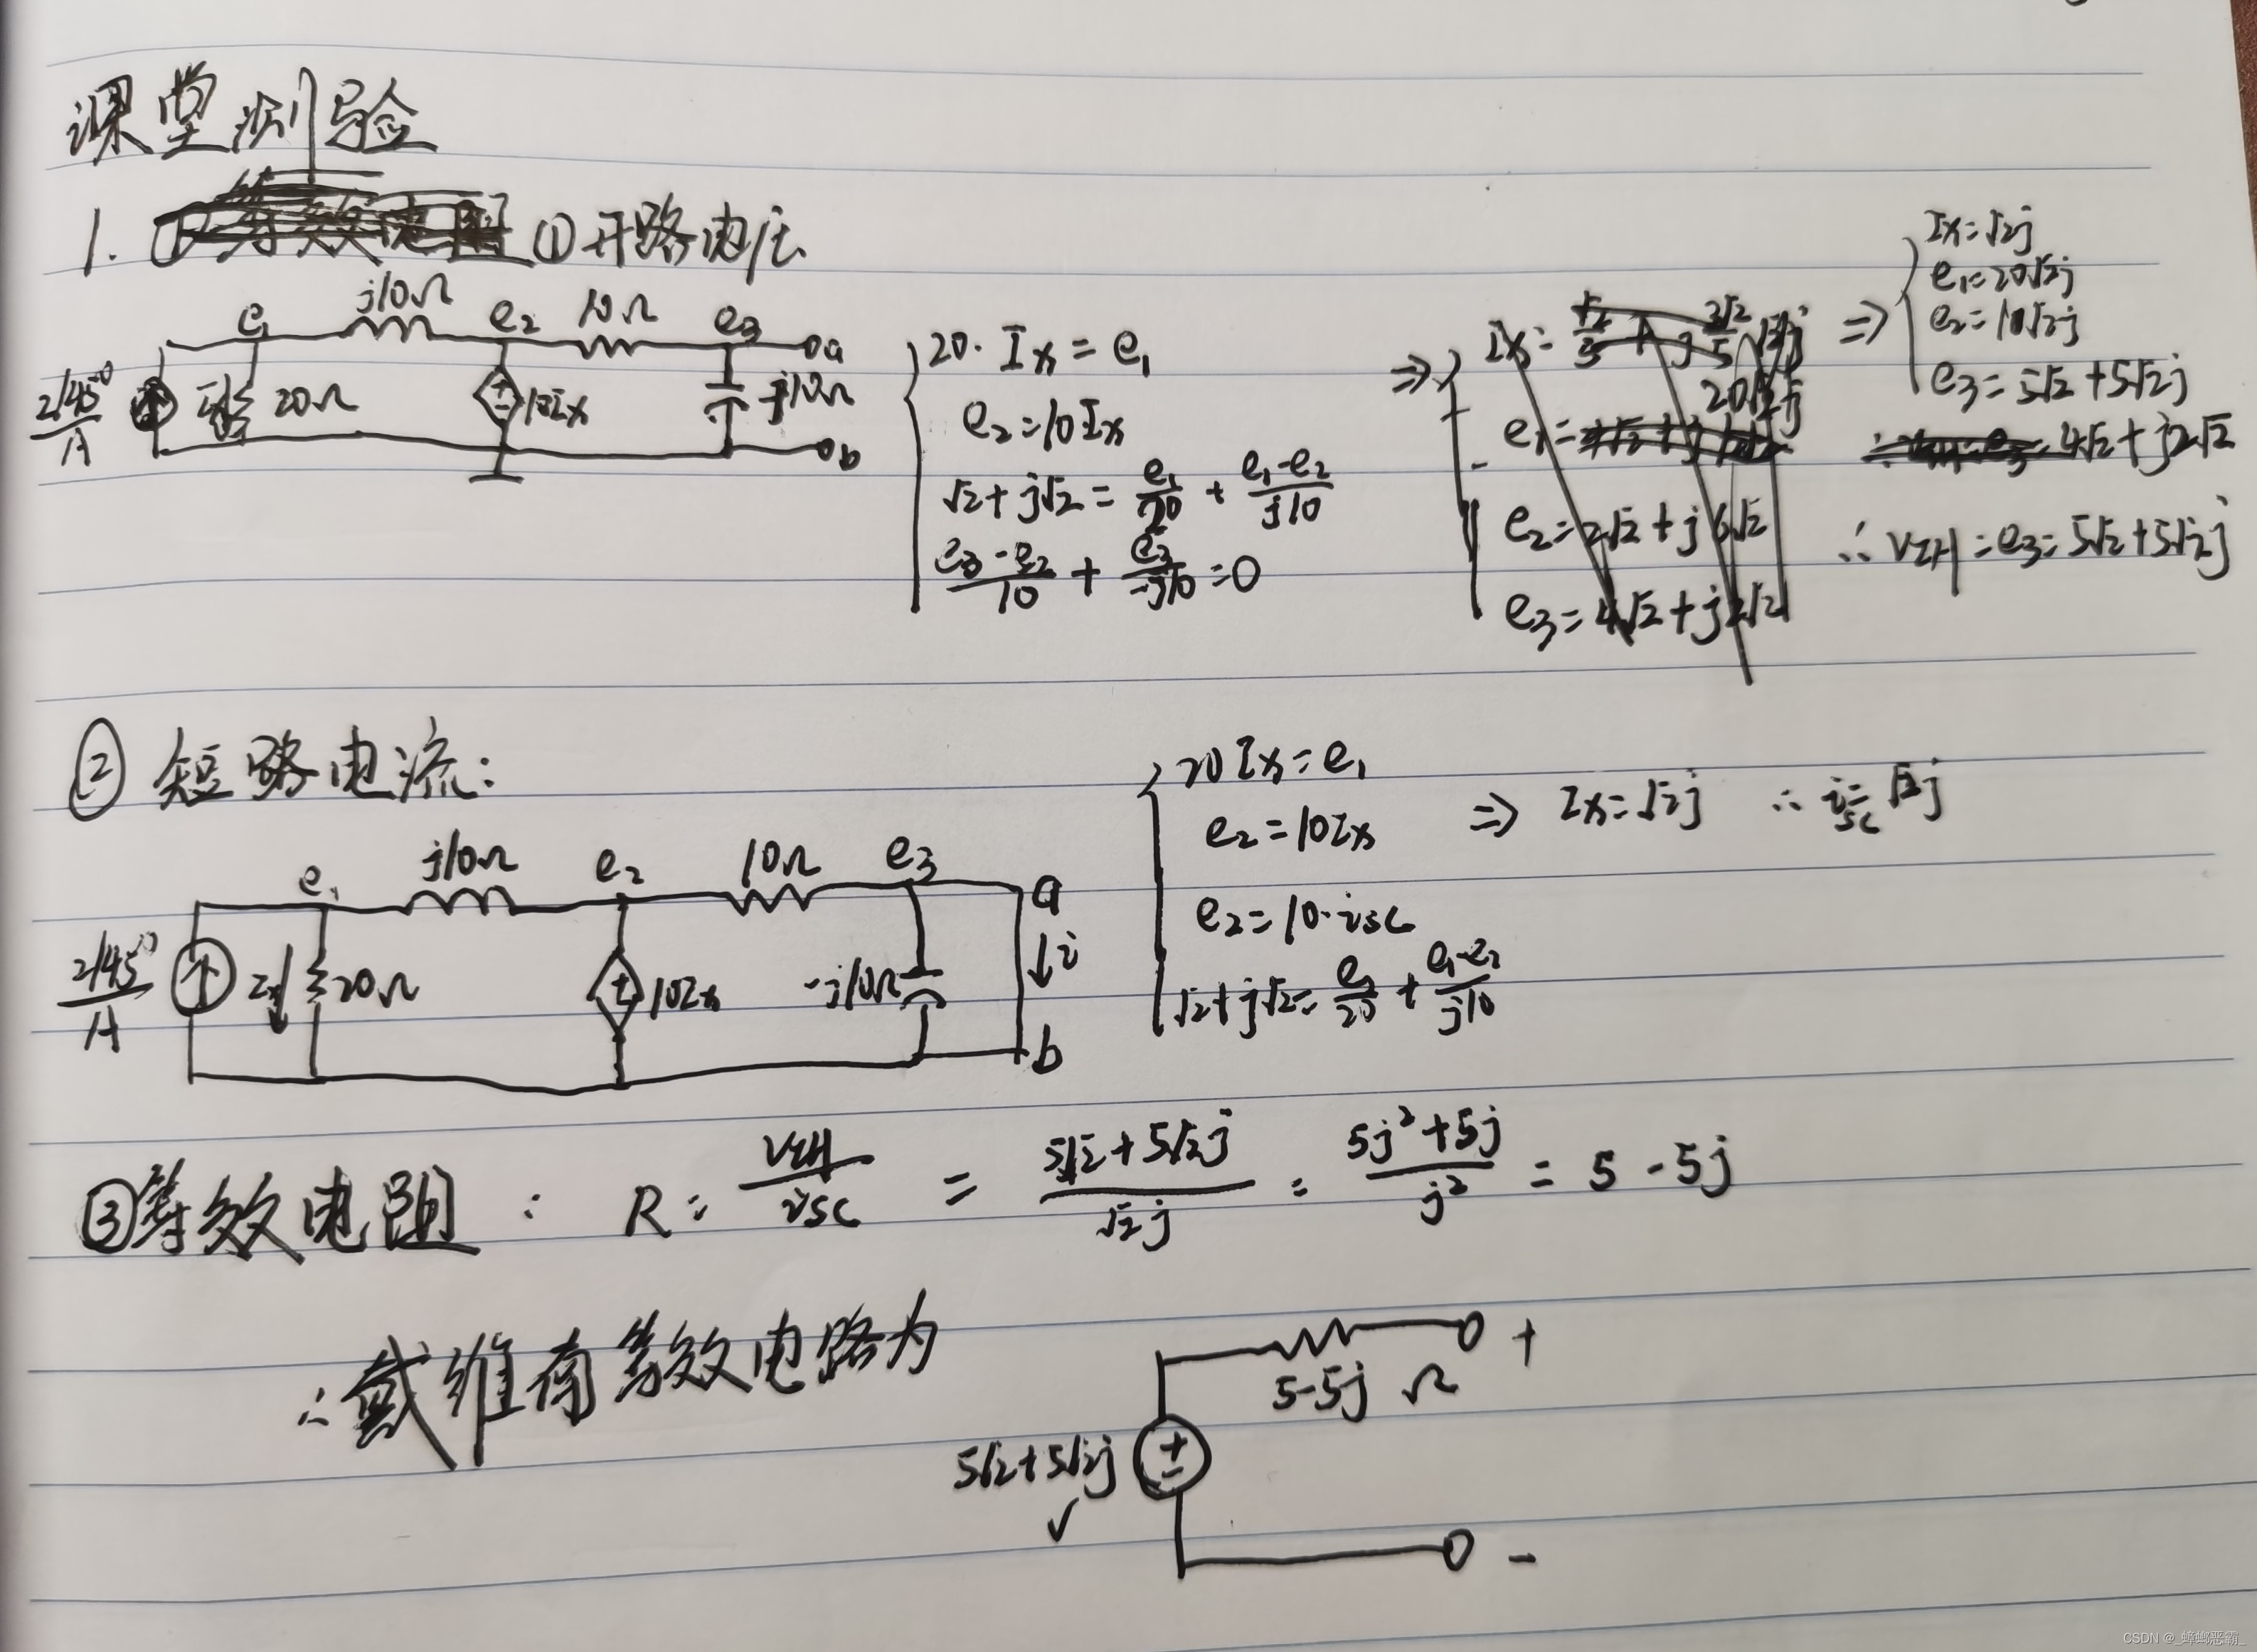 课堂测验
1. ①开路电压
j10Ω
e1 e2 10Ω e3 a
2∠45° A Ix 20Ω 10Ix -j10Ω b
20·Ix = e1
e2 = 10Ix
√2 + j√2 = e1/20 + (e1-e2)/j10
(e3-e2)/10 + e3/-j10 = 0
⇒ Ix =
e1 = 20√2j
e2 = 2√2 + j6√2
e3 = 4√2 + j2√2
⇒ Ix = √2j
e1 = 20√2j
e2 = 10√2j
e3 = 5√2 + 5√2j
4√2 + j2√2
∴ VTH = e3 = 5√2 + 5√2j
② 短路电流:
j10Ω
e1 e2 10Ω e3 a
2∠45° A Ix 20Ω 10Ix -j10Ω i
b
20Ix = e1
e2 = 10Ix
e2 = 10·isc
√2 + j√2 = e1/20 + (e1-e2)/j10
⇒ Ix = √2j ∴ isc = √2j
③等效电阻: R = VTH/isc = (5√2 + 5√2j)/√2j = (5j² + 5j)/j² = 5 - 5j
∴戴维南等效电路为
+
5-5j Ω
5√2+5√2j V
+
-
-
CSDN @_蟑螂恶霸_